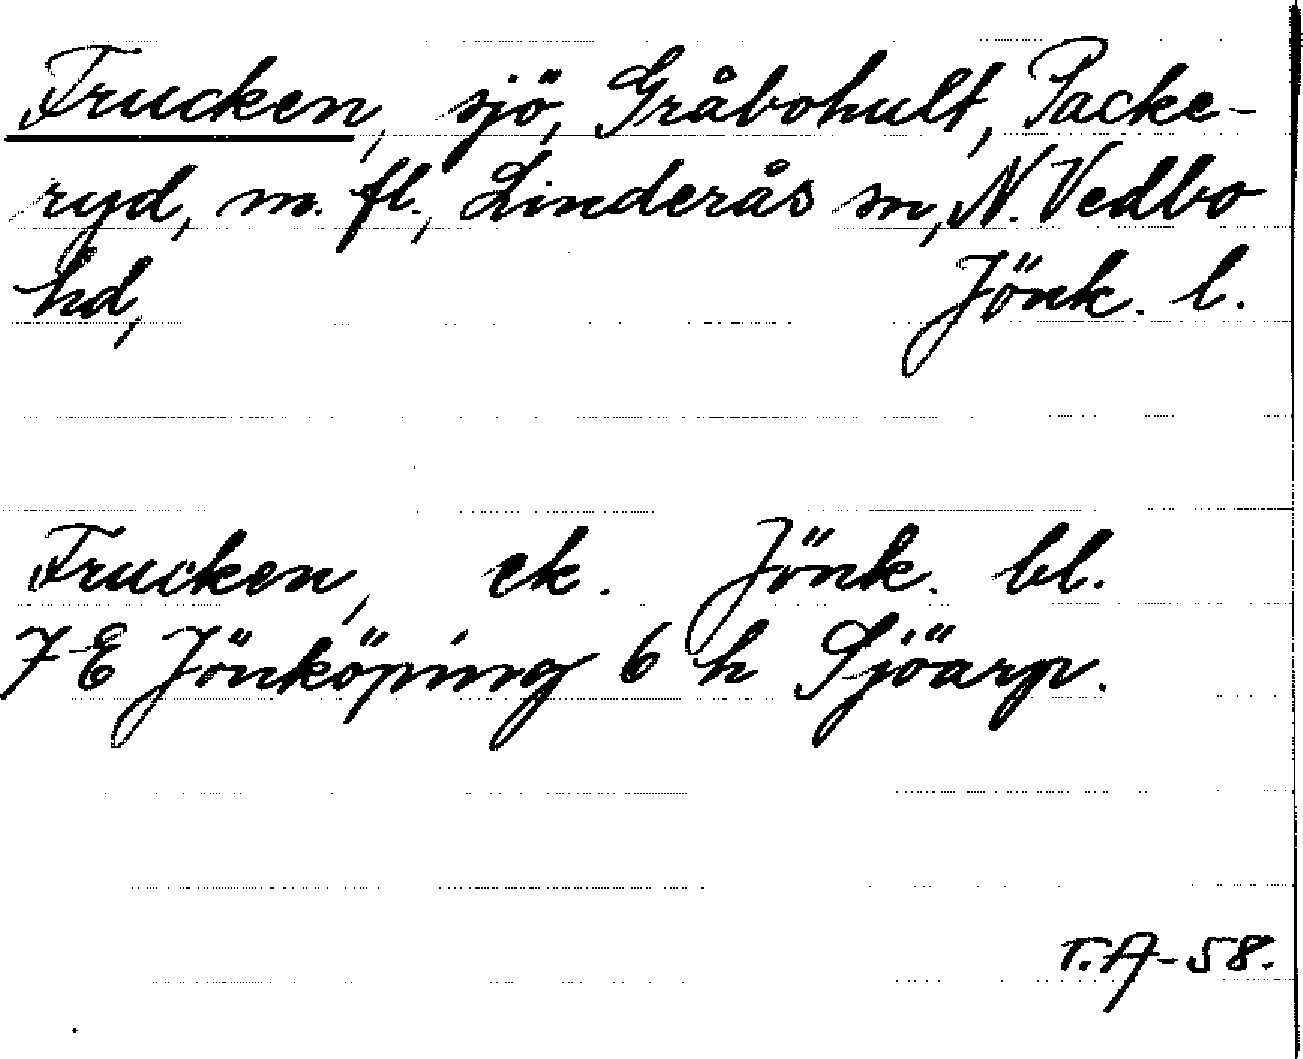 Frucken, sjö, Gråbohult, Packe-
ryd, m. fl., Linderås sn, N. Vedbo
hd, Jönk. l.
Frucken, ek. Jönk. bl.
7 E Jönköping 6 h Sjöarp.
T.A-58.